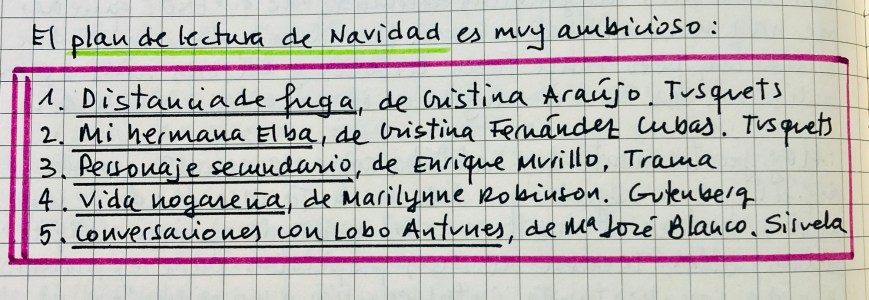 El plan de lectura de Navidad es muy ambicioso:
1. Distancia de fuga, de Cristina Araújo. Tusquets
2. Mi hermana Elba, de Cristina Fernández Cubas. Tusquets
3. Personaje secundario, de Enrique Murillo, Trama
4. Vida hogareña, de Marilynne Robinson. Gutenberg
5. Conversaciones con Lobo Antunes, de Mª José Blanco. Siruela